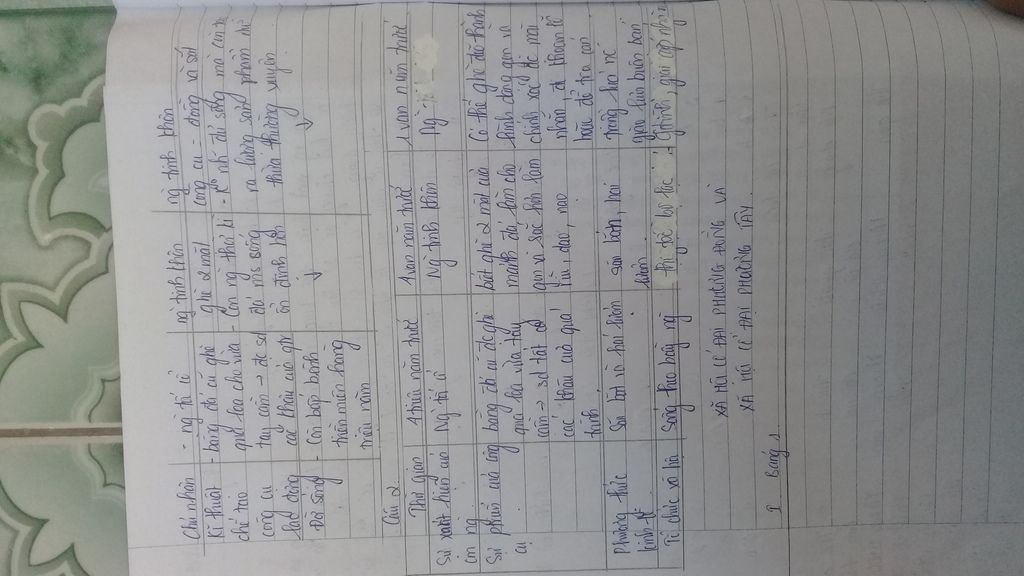 Chủ nhân
- ng tối cổ
ng tinh khôn
ng tinh khôn
Kĩ thuật
chế tạo
công cụ
lao động
- bằng đá cũ ghè
qua loa cho vừa
tay cầm → đc sd
ghè 2 mặt
- Con ng thời kì
đá ms sống
ổn định hơn
công cụ - đồng và sắt
- K° nh đủ sống mà còn tạo
ra lượng sản phẩm
thừa thường xuyên
Đời sống
- Có bấp bênh
triền miên hàng
triệu năm
Câu 2
Thời gian
4 triệu năm trước
4 vạn năm trước
1 vạn năm trước
Sự xuất hiện của
con ng
Ng tối cổ
Ng tinh khôn
Ng
Sự phát của công
cụ
bằng đá cũ đc ghè
qua loa vừa tay
cầm → sd tất cả
các khâu của quá
trình
biết ghè 2 mặt của
mảnh đá làm cho
gọn và sắc hơn làm
rìu, dao, nạo
Có thể ghè đẽo thành
hình dáng gọn và
chính xác đc mài
nhẵn đc khoan lỗ
hoặc để tra cán
Phương thức
kinh tế
Săn bắt và hái lượm
săn bắn, hái
lượm
trồng
Tổ chức xã hội
Sống theo bầy ng
thị tộc bộ lạc
XÃ HỘI CỔ ĐẠI PHƯƠNG ĐÔNG VÀ
XÃ HỘI CỔ ĐẠI PHƯƠNG TÂY.
I Bảng 1